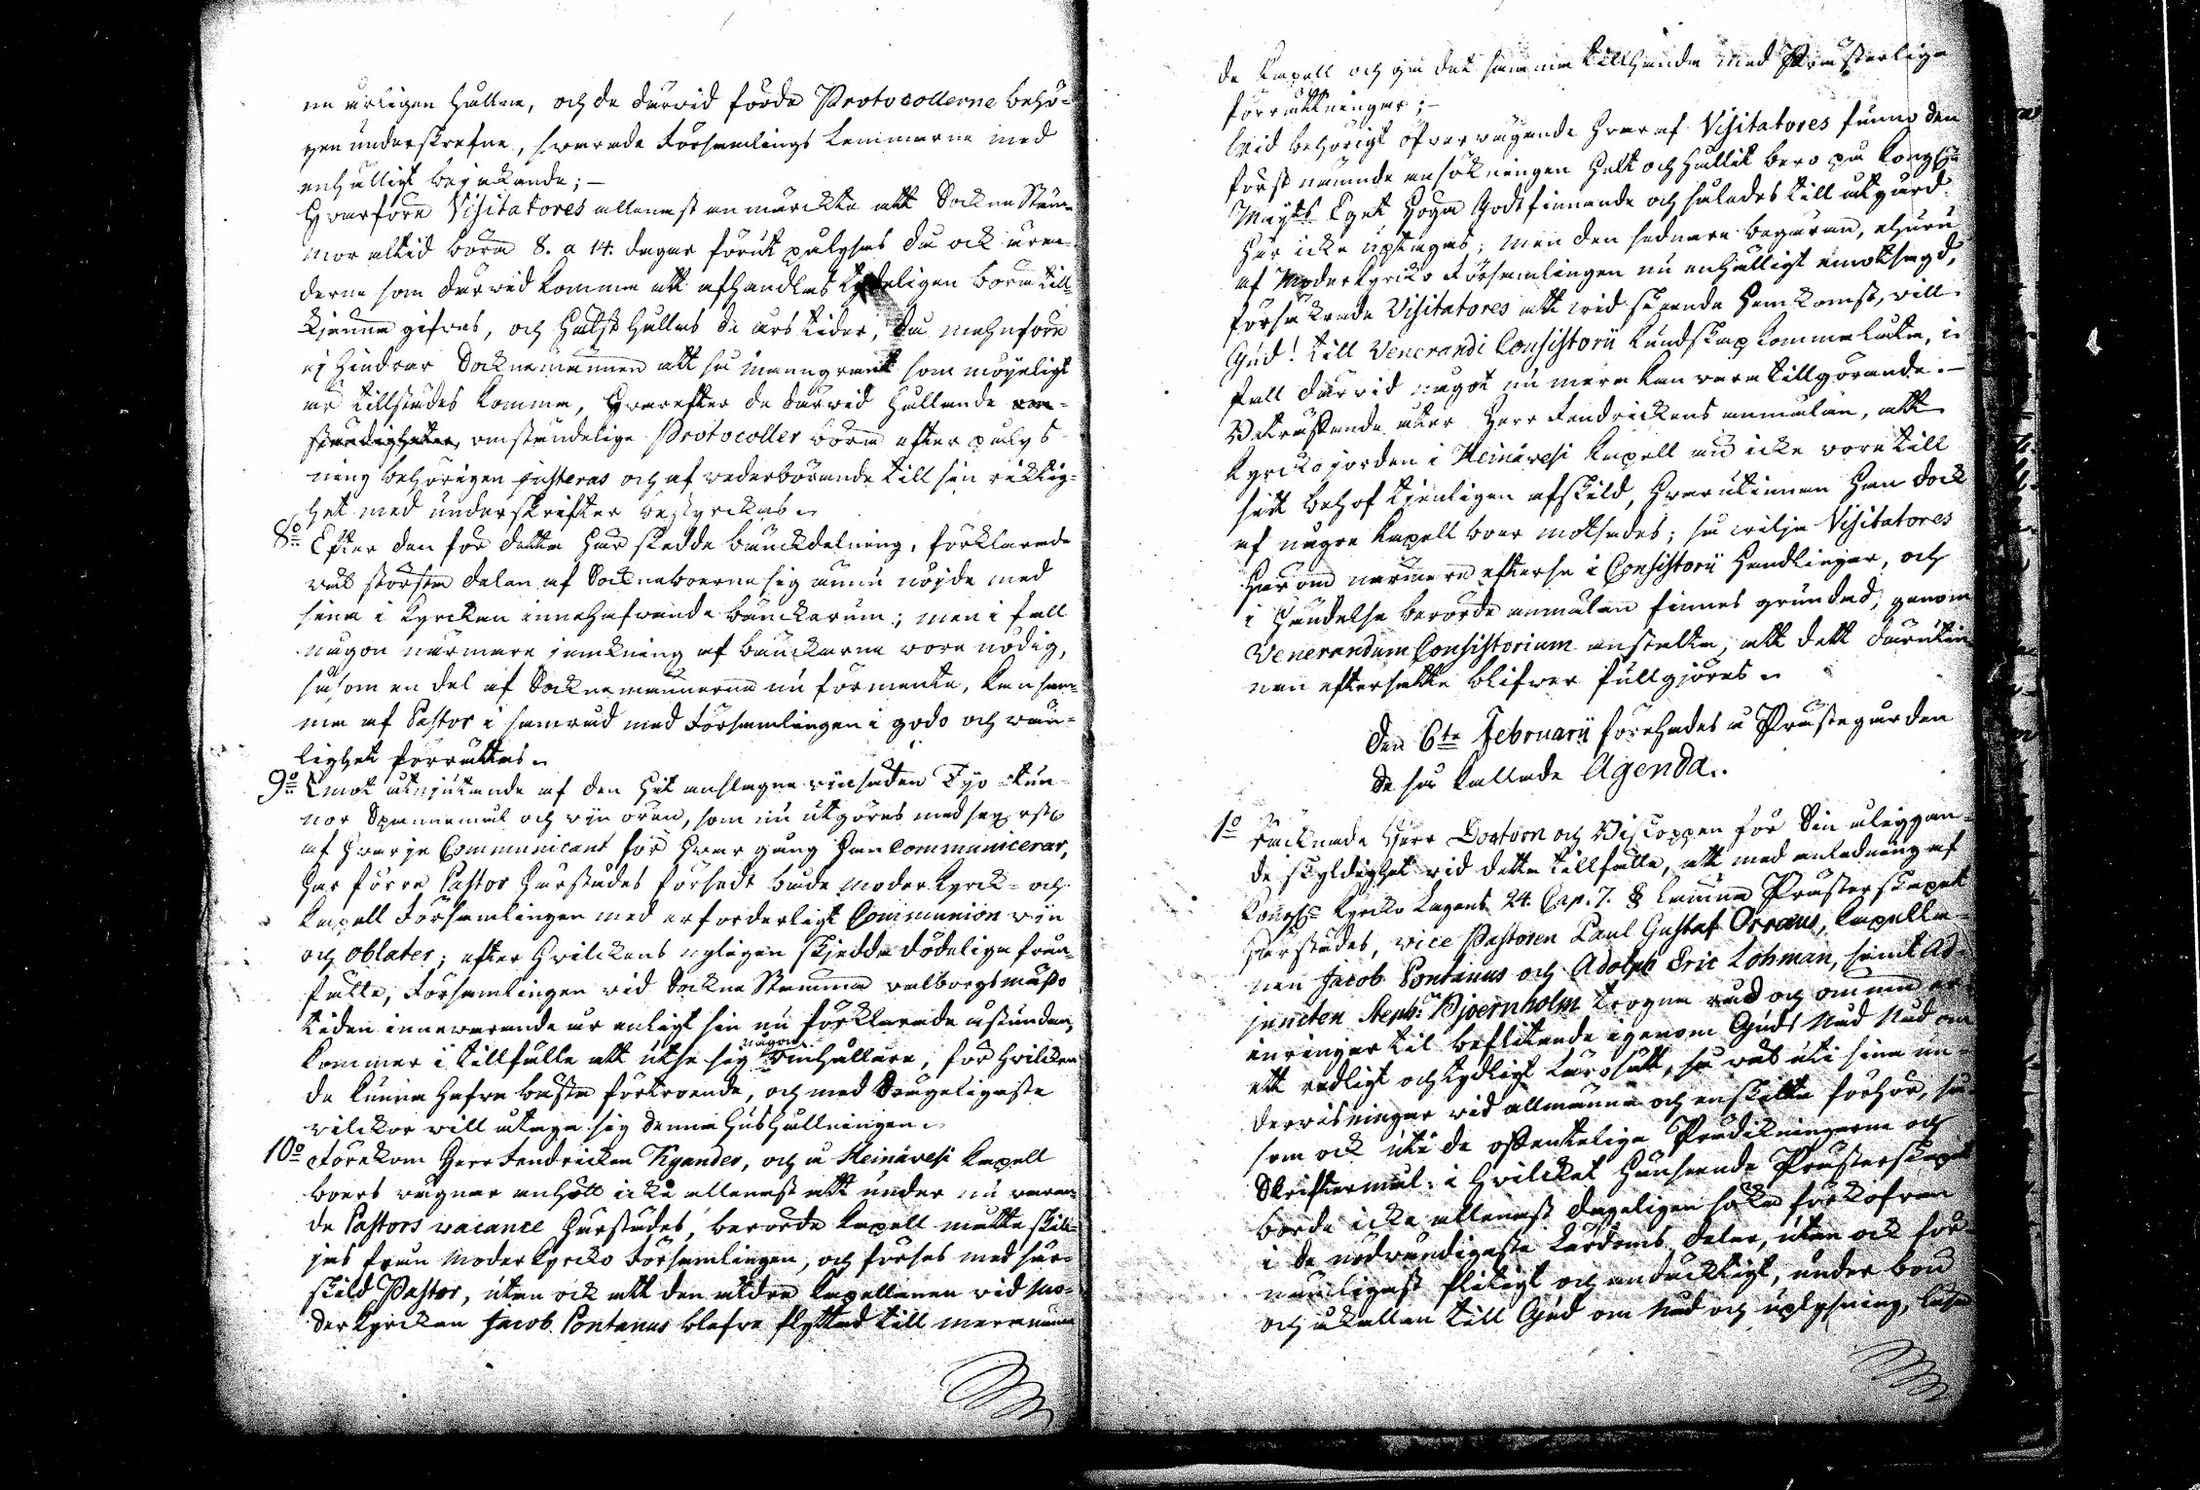 ne årligen hållne, och de därvid förde Protocollerne behö-
gen underskrefne, swarade Församlings Lemmarne med
enhälligt bejakande; –
Hvarföre Visitatores allenast anmärckte att Sockne Stäm-
mor altid böra 8. a 14. dagar förut pålysas då ock ären-
derne som därvid komma att afhandlas tydeligen böra till-
kjenna gifvas, och hälst hållas de års tider, då mehnföre
ej hindrar Socknemännen att så manngrant som möjeligt
är tillstädes komma, Hvarefter de därvid hållande om-
ständigheter, omständelige Protocoller böra efter pålys-
ning behörigen justeras och af vederbörande till sin riktig-
het med underskrifter bestyrckas.
8:o Efter den för detta här skedde bänckdelning, förklarade
väl störste delen af Socknaboerne sig ännu nöjde med
sina i kyrckan innehafvande bänckerum; men i fall
någon närmare jemkning af bänckarne vore nödig,
såsom en del af Socknemännerne nu förmente, kan sam-
ma af Pastor i samråd med Församlingen i godo och vän-
lighet förrättas.
9:o Emot åtnjutande af den hit anslagne vinsäden Tijo tun-
nor Spannemål och vin ören, som nu utgöres med sex rst:r
af hvarje Communicant för hvar gång han Communicerar,
har förre Pastor härstädes försedt både Moder kyrck- och
Capell Församlingen med erforderligt Communion vin
och oblater; efter hvilckens nyligen skjedde dödelige från-
fälle, Församlingen vid Sockne Stämma valborgsmässo
tiden innevarande år enligt sin nu förklarade åstundan,
kommer i tillfälle att utse sig någon vinhållare, för hvilcken
de kunna hafva bästa förtroende, och med drägeligaste
vilckor vill åtaga sig denne hushållningen.
10:o Förekom Herr Fendricken Kyander, och å Heinävesi Capell
boers vägnar anhöllt icke allenast att under nu varan-
de Pastors vacance härstädes, berörde Capell måtte skil-
jas från Moderkyrcko Församlingen, och förses med sär-
skild Pastor, utan ock att den äldre Capellanen vid Mo-
derkyrckan Jacob Pontanus blefve flyttad till merenämn
de Capell och gå det samma tillhanda med Prästerliga
förrättningar; –
Vid behörigt öfvervägande hvaraf Visitatores funno den
förstnämnde ansökningen helt och hållit bero på Kongl:e
Maij:ts Eget höga Godtfinnande och således till åtgärd
här icke uptagas; men den sednare begäran, ehuru
af Moderkyrcko Församlingen nu enhälligt emotsagd,
försäkrade Visitatores att vid skeende hemkomst, vill
Gud! till Venerandi Consistorii kundskap komma låta, i
fall därvid något nu mera kan vara tillgörande. –
Vidkommande åter Herr Fendrickens anmälan, att
kyrckojorden i Heinävesi Capell än icke vore till
sitt behof tjenligen afskild, hvarutinnan han dock
af någre Capell boer motsades; så vilja Visitatores
härom närmare efterse i Consistorii Handlingar, och
i händelse berörde anmälan finnes grundad, genom
Venerandum Consistorium anstalta, att dett därutin
nan eftersatte blifver fullgjordt.
Den 6:te Februarii förehades å Prästegården
de så kallade Agenda.
1:o Påminte Herr Doctorn och Biscoppen för Sin åliggan-
de skyldighet vid detta tillfälle, att med anledning af
Kongl:e kyrcko Lagens 24. Cap. 7. § lemna Prästerskapet
härstädes, vice Pastoren Paul Gustaf Orraeus, Capella-
nen Jacob Pontanus och Adolph Eric Lohman, samt Ad-
juncten Steph: Bjoernholm trogna råd och ömma er-
inringar til beflitande igenom Guds Nåd Nåd om
ett redligt och tydligt lärosätt, så väl uti sine un-
dervisningar vid allmänna och enskilta förhör, så
som ock uti de offentelige Predikningarne och
Skriftermål: i hvilcket hänseende Prästerskapet
borde icke allenast dageligen söka förkofran
i de nödvändigaste Lärdoms delar, utan ock för-
nämligast flitigt och andäcktigt, under bön
och åkallan till Gud om Nåd och uplysning, läsa